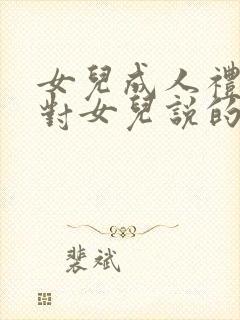 女兒成人禮
對女兒說的
裴斌